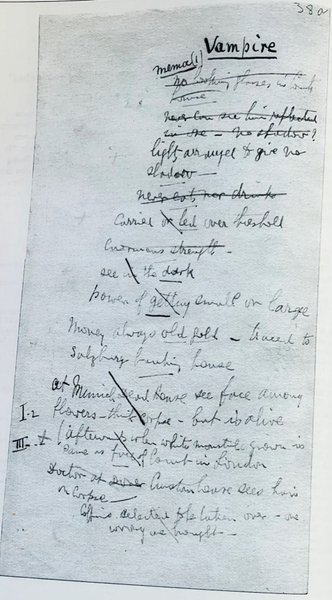 38a
Vampire
memo (1)
no looking glasses in Count's
house
never can see him reflected
in one – no shadow?
lights arranged to give no
shadow —
never eats nor drinks
Carried or led over threshold
enormous strength –
see in the dark
power of getting small or large
Money always old gold – traced to
Salzburg banking house
I-2 at Munich Dead House see face among
flowers – think corpse – but is alive
III- (Afterwards when white moustache grown is
same as face of Count in London
Doctor at Custom house sees him
or corpse —
Coffins selected to be taken over – one
wrong one brought –